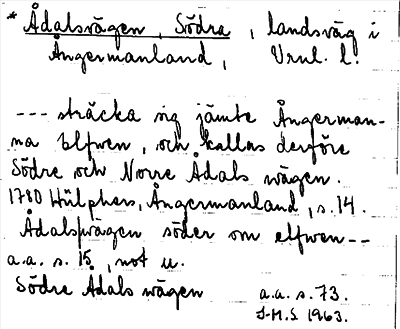 * Ådalsvägen, Södra, landsväg i
Ångermanland, Vrnl. l.
--- sträcka sig jämte Ångerman-
na Elfwen, och kallas derföre
Södre och Norre Ådals wägen.
1780 Hülphers, Ångermanland, s. 14.
Ådalswägen söder om elfwen--
a.a. s. 15, not u.
Södre Ådals wägen a.a. s. 73.
I-M.S 1963.